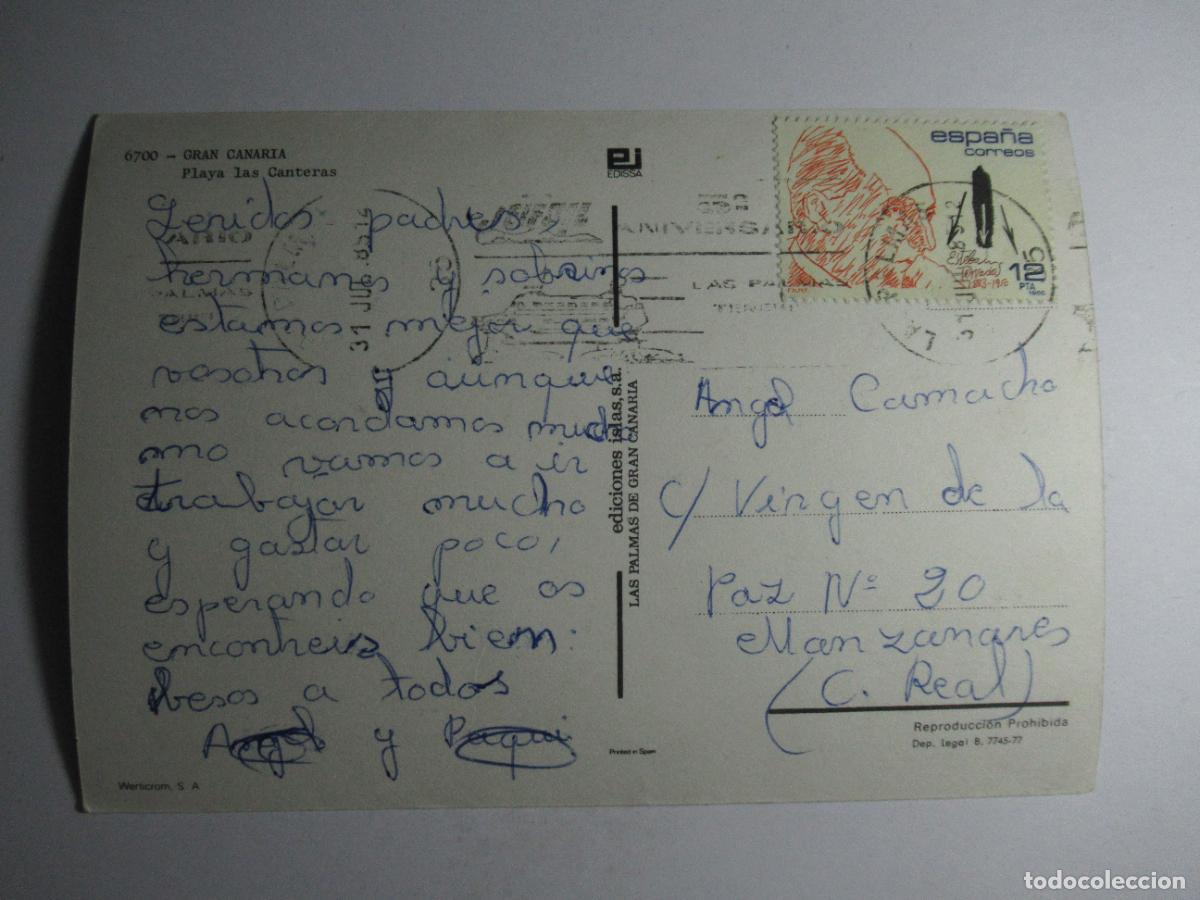 6700 - GRAN CANARIA
Playa las Canteras
EDISSA
Qeridos padres,
hermanos y sobrinos
estamos mejor que
vosotros y aunque
nos acordamos mucho
mo vamos a ir
trabajar mucho
y gastar poco,
esperando que os
encontreis bien.
besos a todos
Angel y Paqui
Werticrom, S. A
ediciones islas, s.a.
LAS PALMAS DE GRAN CANARIA
Printed in Spain
españa
correos
12
PTA
ANIVERSARIO
LAS PALMAS
31 JUL 85
Angel Camacho
C/ Virgen de la
Paz Nº 20
Manzanares
(C. Real)
Reproducción Prohibida
Dep. legal B. 7745-77
todocoleccion